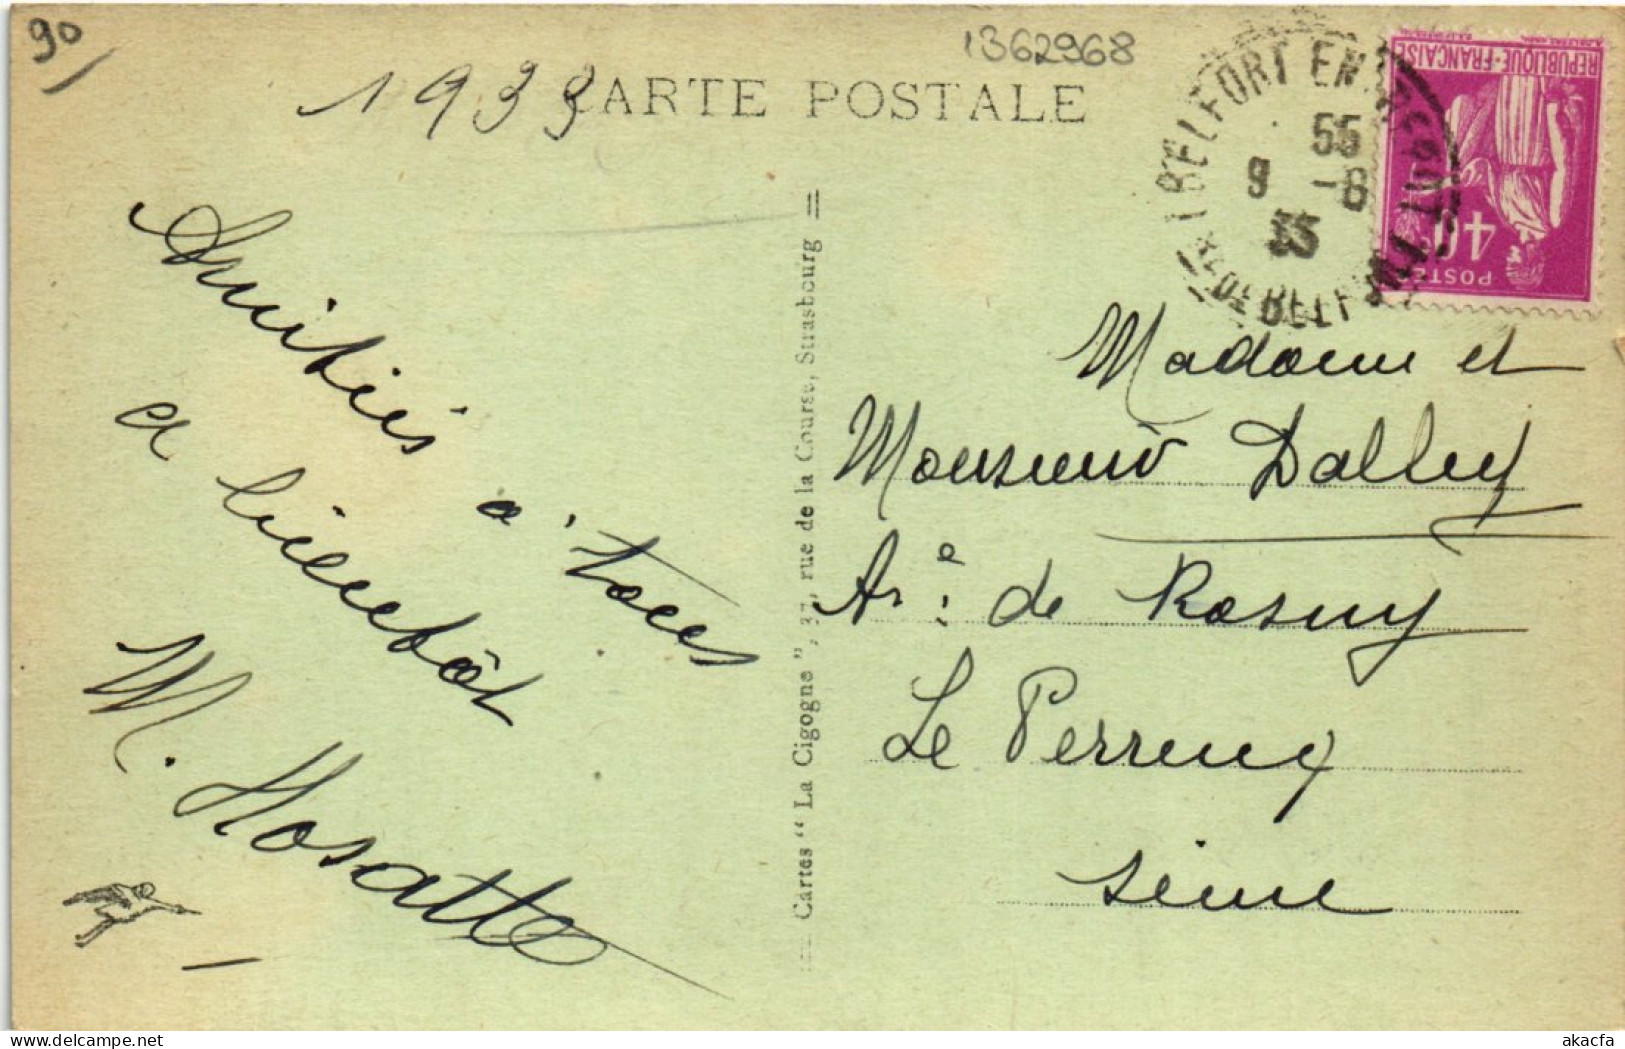 90
1362968
1933
CARTE POSTALE
REPUBLIQUE-FRANÇAISE
40c
POSTES
BELFORT ENTREPOT
55
9 -6
33
DE BELFORT
Amitiés à tous
à bientôt
M. Hosatte
Cartes "La Cigogne", 37, rue de la Course, Strasbourg
Madame et
Monsieur Dalley
Av.e de Rosny
Le Perreux
Seine
akacfa